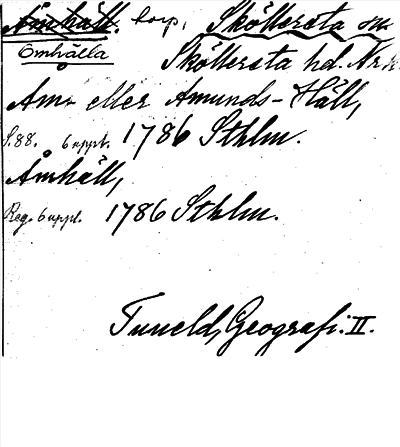 Åmhäll. torp, Sköllersta sn
Ömhälla Sköllersta hd. Nrk
Am- eller Amunds-Häll,
S. 88. 6 uppl. 1786 Sthlm.
Åmhäll,
Reg. 6 uppl. 1786 Sthlm.
Tuneld, Geografi. II.